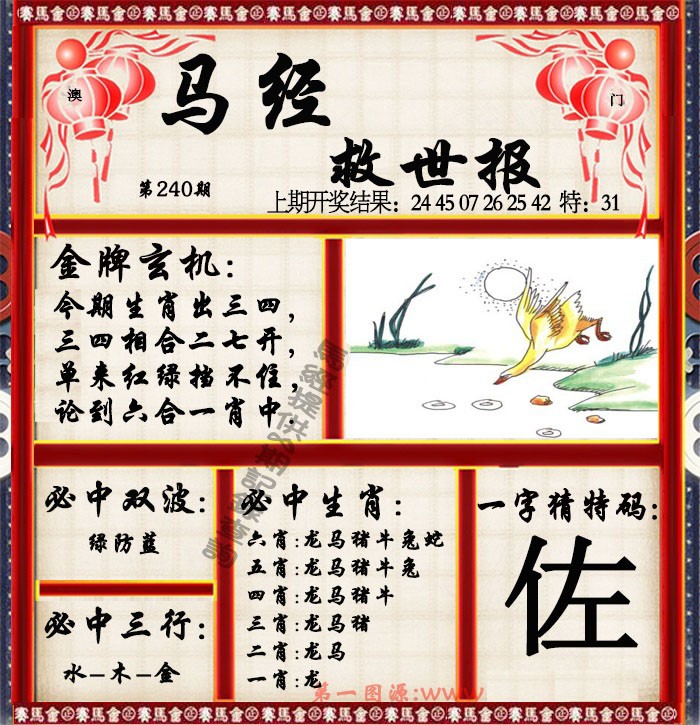 賽馬會金正賽馬會金正賽馬會金正賽馬會金正賽馬會金
澳
门
马经
救世报
第240期
上期开奖结果：24 45 07 26 25 42 特：31
金牌玄机：
今期生肖出三四，
三四相合二七开，
单来红绿挡不住，
论到六合一肖中.
必中双波：
绿防蓝
必中三行：
水-木-金
必中生肖：
六肖:龙马猪牛兔蛇
五肖:龙马猪牛兔
四肖:龙马猪牛
三肖:龙马猪
二肖:龙马
一肖:龙
一字猜特码:
佐
第一图源:www